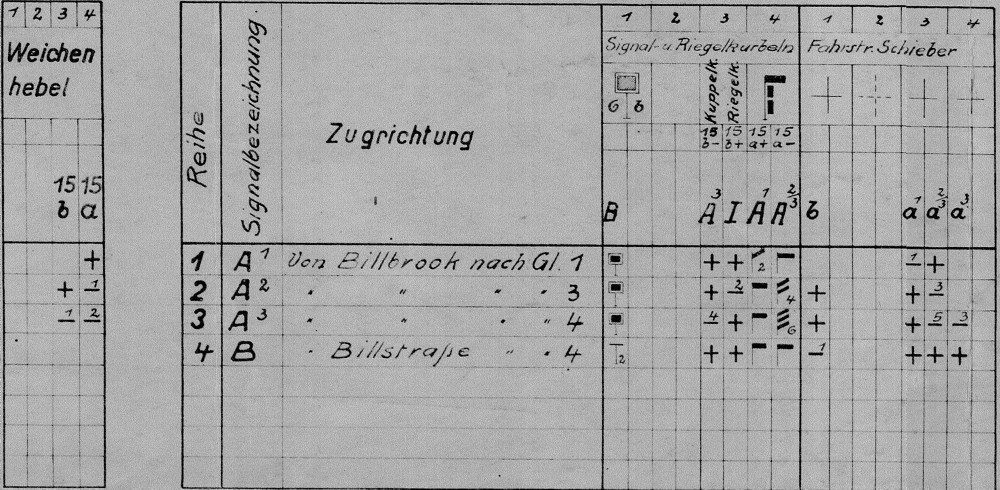 1 2 3 4
Weichen
hebel
15 15
b a
+
+ 1
1 2
Reihe
Signalbezeichnung
Zugrichtung
1 2 3 4 1 2 3 4
Signal- u Riegelkurbeln Fahrstr. Schieber
6 b
Kuppelk.
Riegelk.
15 15 15 15
b- b+ a+ a-
B A³ I A¹ A²/₃ b a¹ a²/₃ a³
1 A¹ Von Billbrook nach Gl. 1 + + 2 1 +
2 A² " " " " 3 + 2 4 + + 3
3 A³ " " " " 4 4 + 6 + + 5 3
4 B " Billstraße " " 4 2 + + 1 + + +